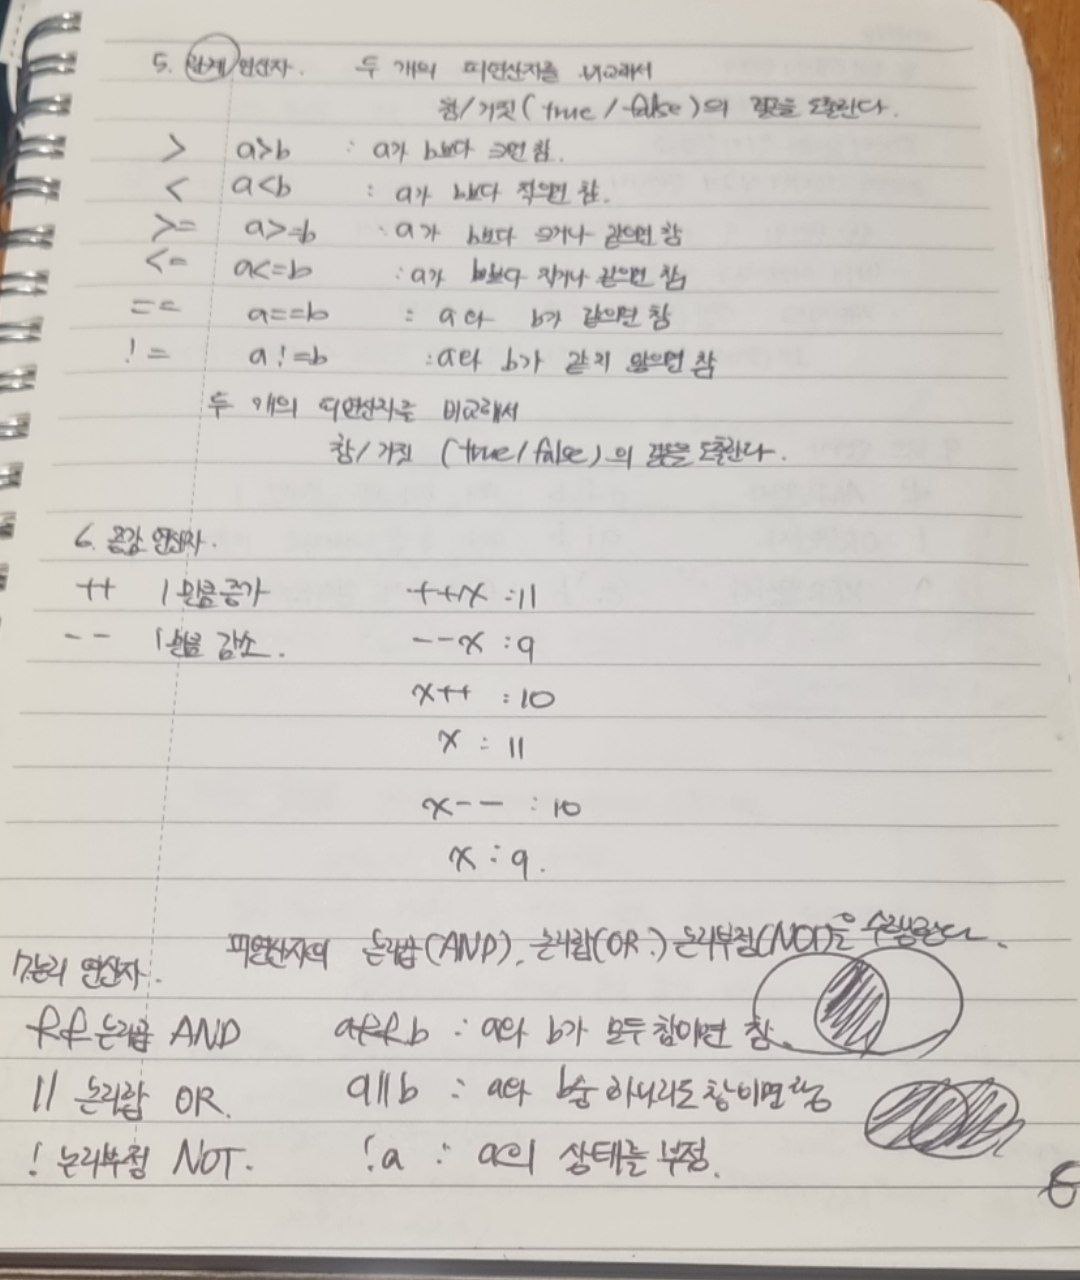 5. 관계 연산자. 두 개의 피연산자를 비교해서
참/거짓(true/false)의 결론을 도출한다.
> a>b : a가 b보다 크면 참.
< a<b : a가 b보다 작으면 참.
>= a>=b : a가 b보다 크거나 같으면 참
<= a<=b : a가 b보다 작거나 같으면 참
== a==b : a와 b가 같으면 참
!= a!=b : a와 b가 같지 않으면 참
두 개의 피연산자를 비교해서
참/거짓 (true/false)의 결론을 도출한다.
6. 증감 연산자.
++ 1만큼 증가 ++x : 11
-- 1만큼 감소. --x : 9
x++ : 10
x : 11
x-- : 10
x : 9.
피연산자의 논리곱(AND), 논리합(OR.) 논리부정(NOT)을 수행한다.
7. 논리 연산자.
&& 논리곱 AND a&&b : a와 b가 모두 참이면 참.
|| 논리합 OR. a||b : a와 b중 하나라도 참이면 참
! 논리부정 NOT. !a : a의 상태를 부정.
6